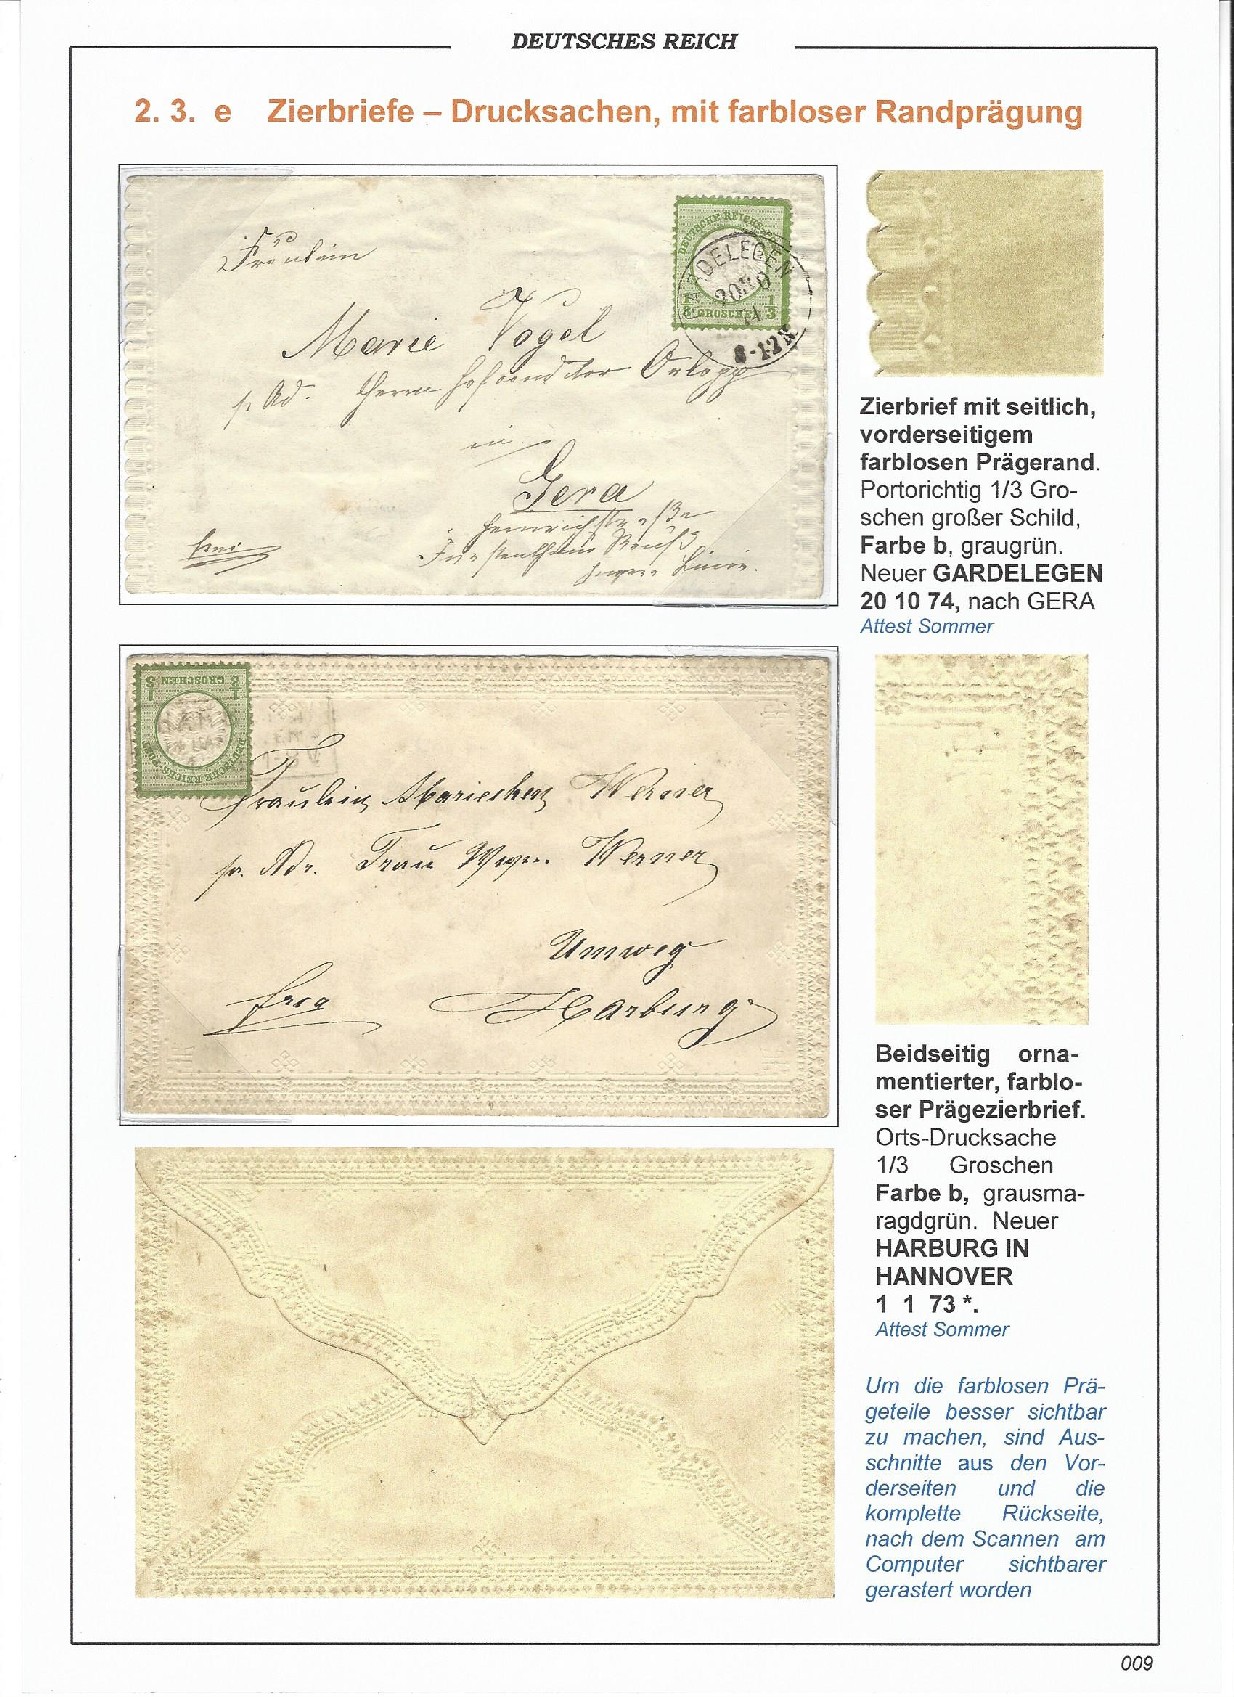 DEUTSCHES REICH
2. 3. e Zierbriefe – Drucksachen, mit farbloser Randprägung
Fräulein
Marie Vogel
p. Ad. Herrn Hofconditor
in
Gera
Heinrichstraße
Fürstenthum Reuß
Linie.
frei
DEUTSCHE REICHS-POST
1/3 GROSCHEN 1/3
8-12 N
Zierbrief mit seitlich,
vorderseitigem
farblosen Prägerand.
Portorichtig 1/3 Gro-
schen großer Schild,
Farbe b, graugrün.
Neuer GARDELEGEN
20 10 74, nach GERA
Attest Sommer
1/3 GROSCHEN 1/3
DEUTSCHE REICHS-POST
Fräulein Mariechen Werner
pr. Adr. Frau Wwe. Werner
Umweg
Harburg
frco
Beidseitig orna-
mentierter, farblo-
ser Prägezierbrief.
Orts-Drucksache
1/3 Groschen
Farbe b, grausma-
ragdgrün. Neuer
HARBURG IN
HANNOVER
1 1 73 *.
Attest Sommer
Um die farblosen Prä-
geteile besser sichtbar
zu machen, sind Aus-
schnitte aus den Vor-
derseiten und die
komplette Rückseite,
nach dem Scannen am
Computer sichtbarer
gerastert worden
009